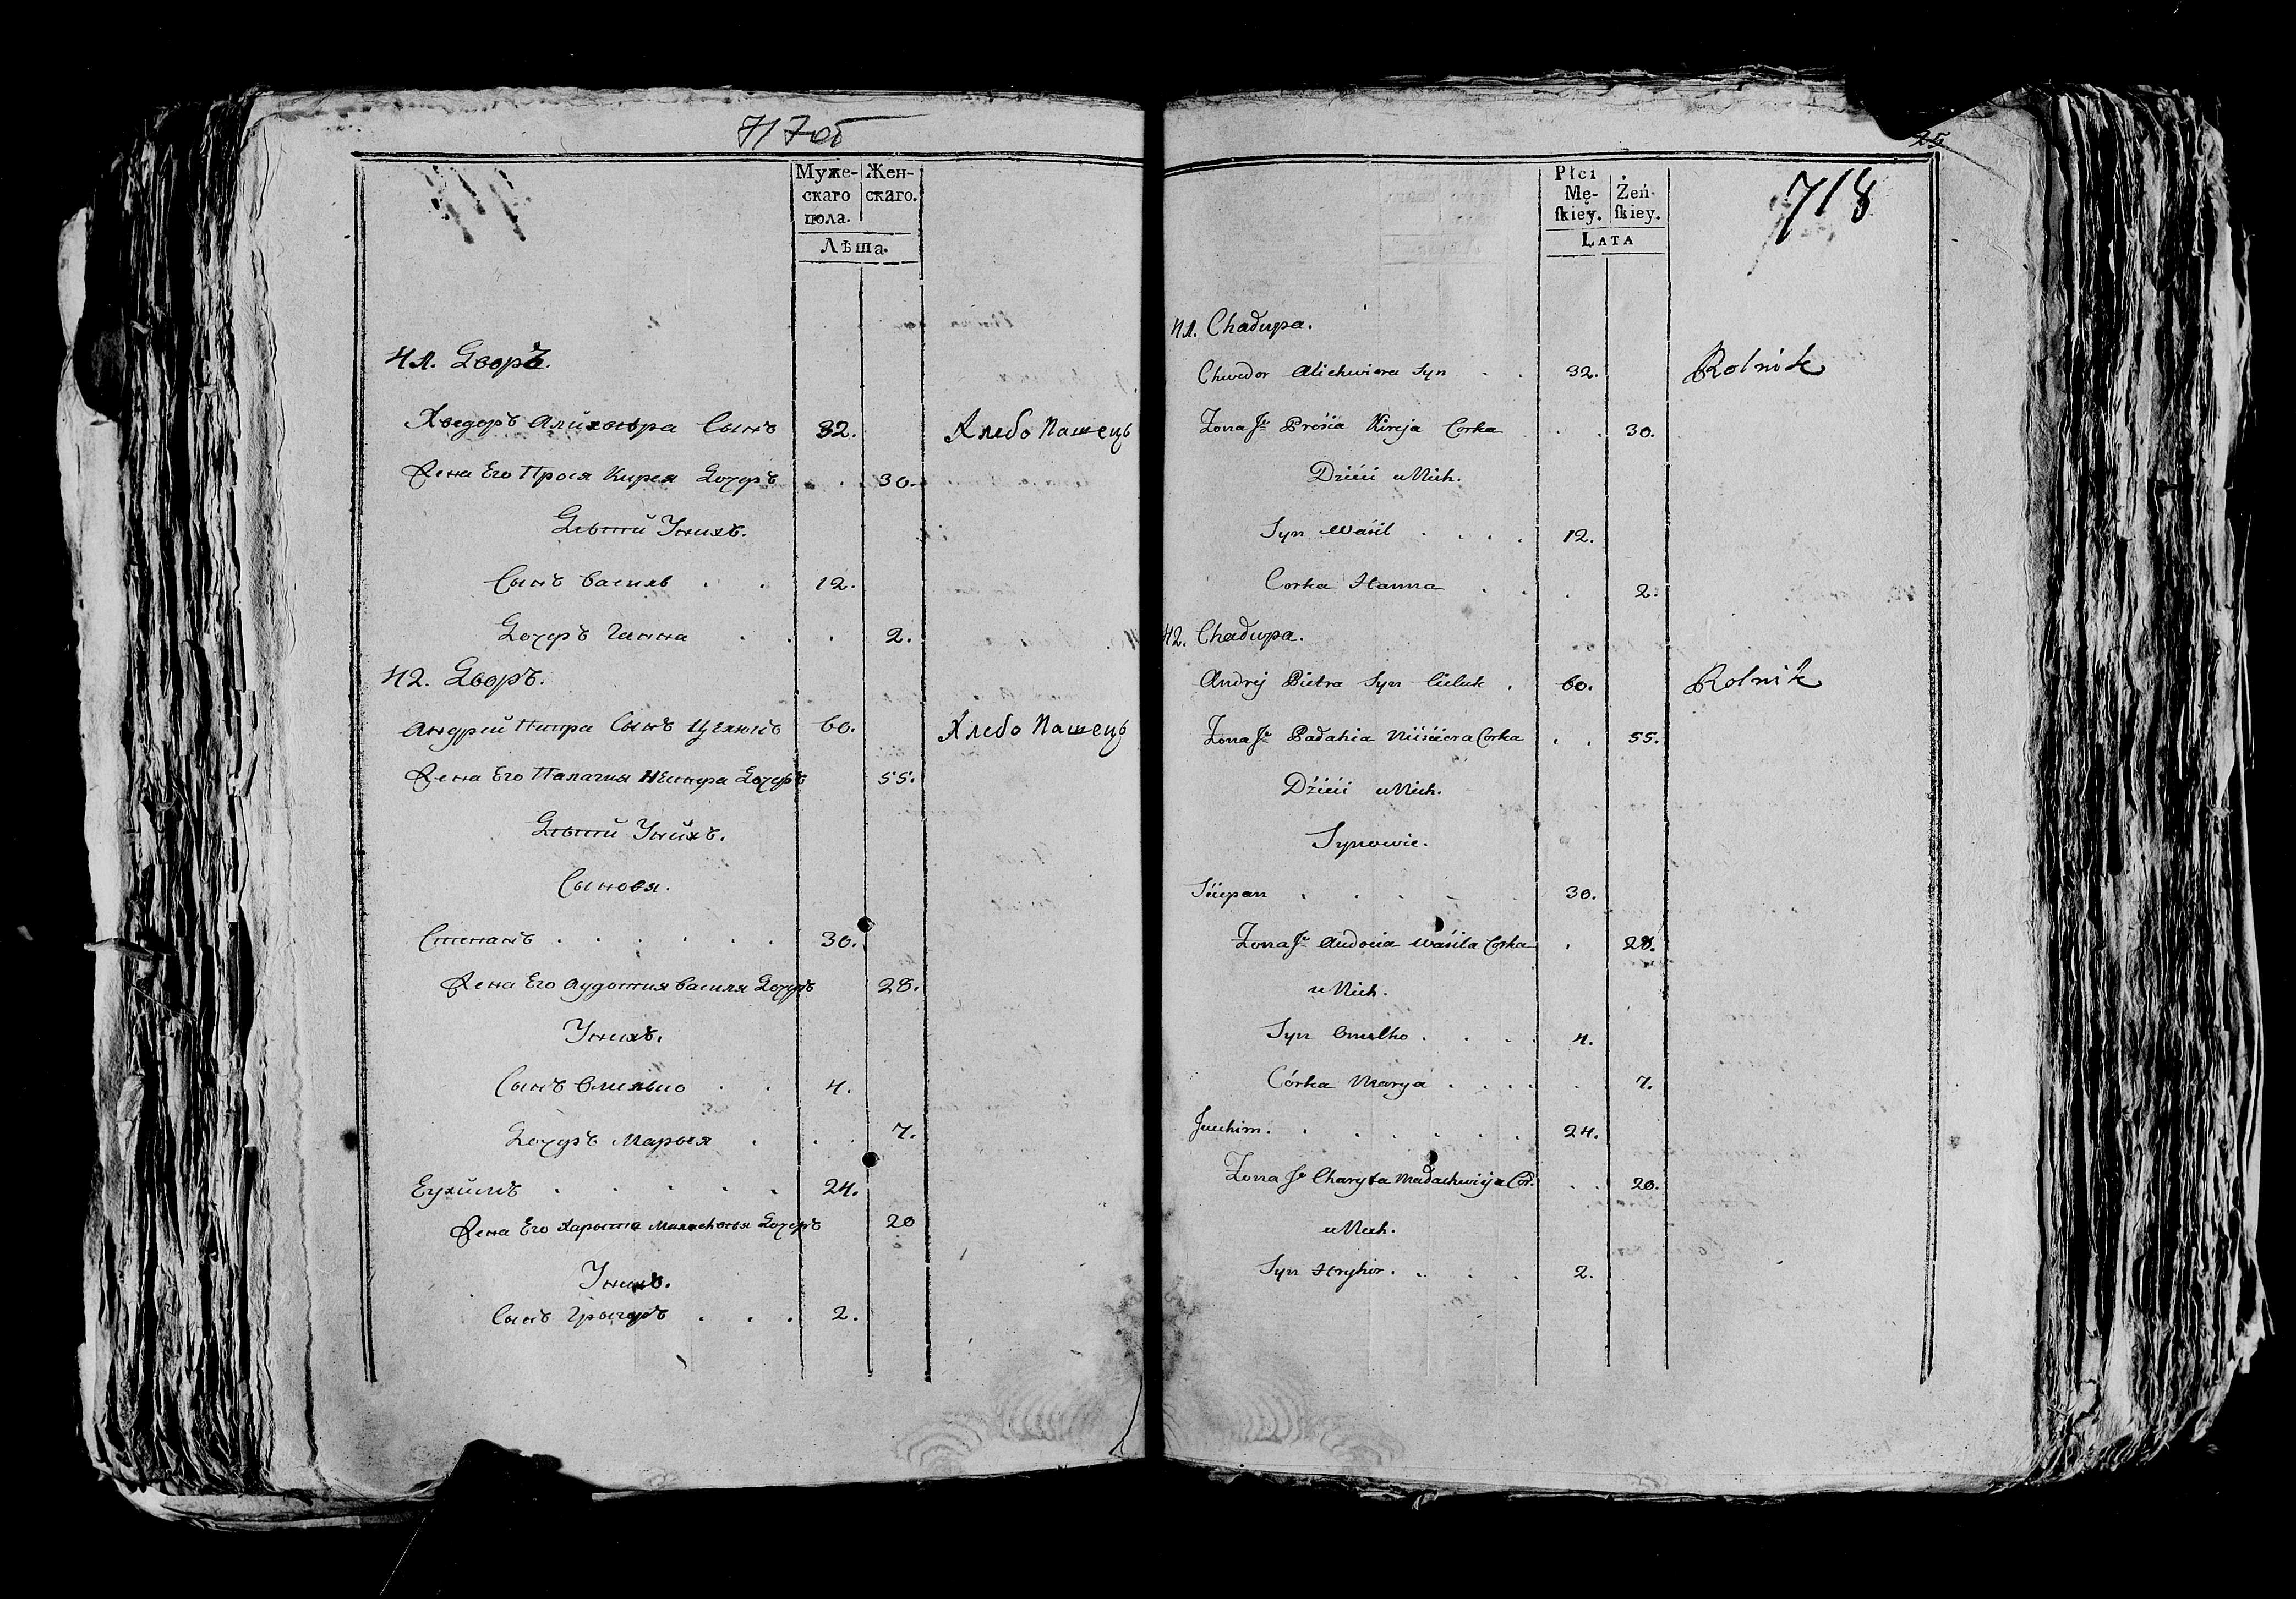 717об
Муже-
скаго
пола.
Жен-
скаго.
Лѣта.
41. Дворъ.
Хведоръ Алихвѣра Сынъ 32. Хлебо Пашець
Жена Его Прося Кирея Дочеръ . . 30.
Дѣтти Унихъ.
Сынъ Василь . . 12.
Дочеръ Ганна . . . 2.
42. Дворъ.
Андрей Пятра Сынъ Целюкъ 60. Хлебо Пашець
Жена Его Палагия Нестера Дочеръ 55.
Дѣтти Унихъ.
Сыновя.
Степанъ . . . . . . 30.
Жена Его Аудотия Василя Дочеръ 28.
Унихъ.
Сынъ Омелько . . 4.
Дочеръ Марыя . . . 7.
Еухимъ . . . . . 24.
Жена Его Харыта Малахвѣя Дочеръ 20
Унихъ.
Сынъ Грыгоръ . . . 2.
25
718
Płci
Mę-
ſkiey.
Żeń-
ſkiey.
Lata
41. Chadupa.
Chwedor Alichwiera Syn . . 32. Rolnik
Żona Je Prosia Kireja Corka . . . 30.
Dzieci u Nich.
Syn Wasil . . . . 12.
Corka Hanna . . . 2.
42. Chadupa.
Andrej Pietra Syn Cieluk . 60. Rolnik
Żona Je Padahia Nisciera Corka . . 55.
Dzieci u Nich.
Synowie.
Sciepan . . . . . 30.
Żona Je Audocia Wasila Corka . 28.
u Nich.
Syn Omelko . . . . 4.
Córka Marya . . . . . 7.
Jeuchim . . . . . . . 24.
Żona Je Charyta Madachwieja Cor. . . 20.
u Nich.
Syn Hryhor . . . . 2.